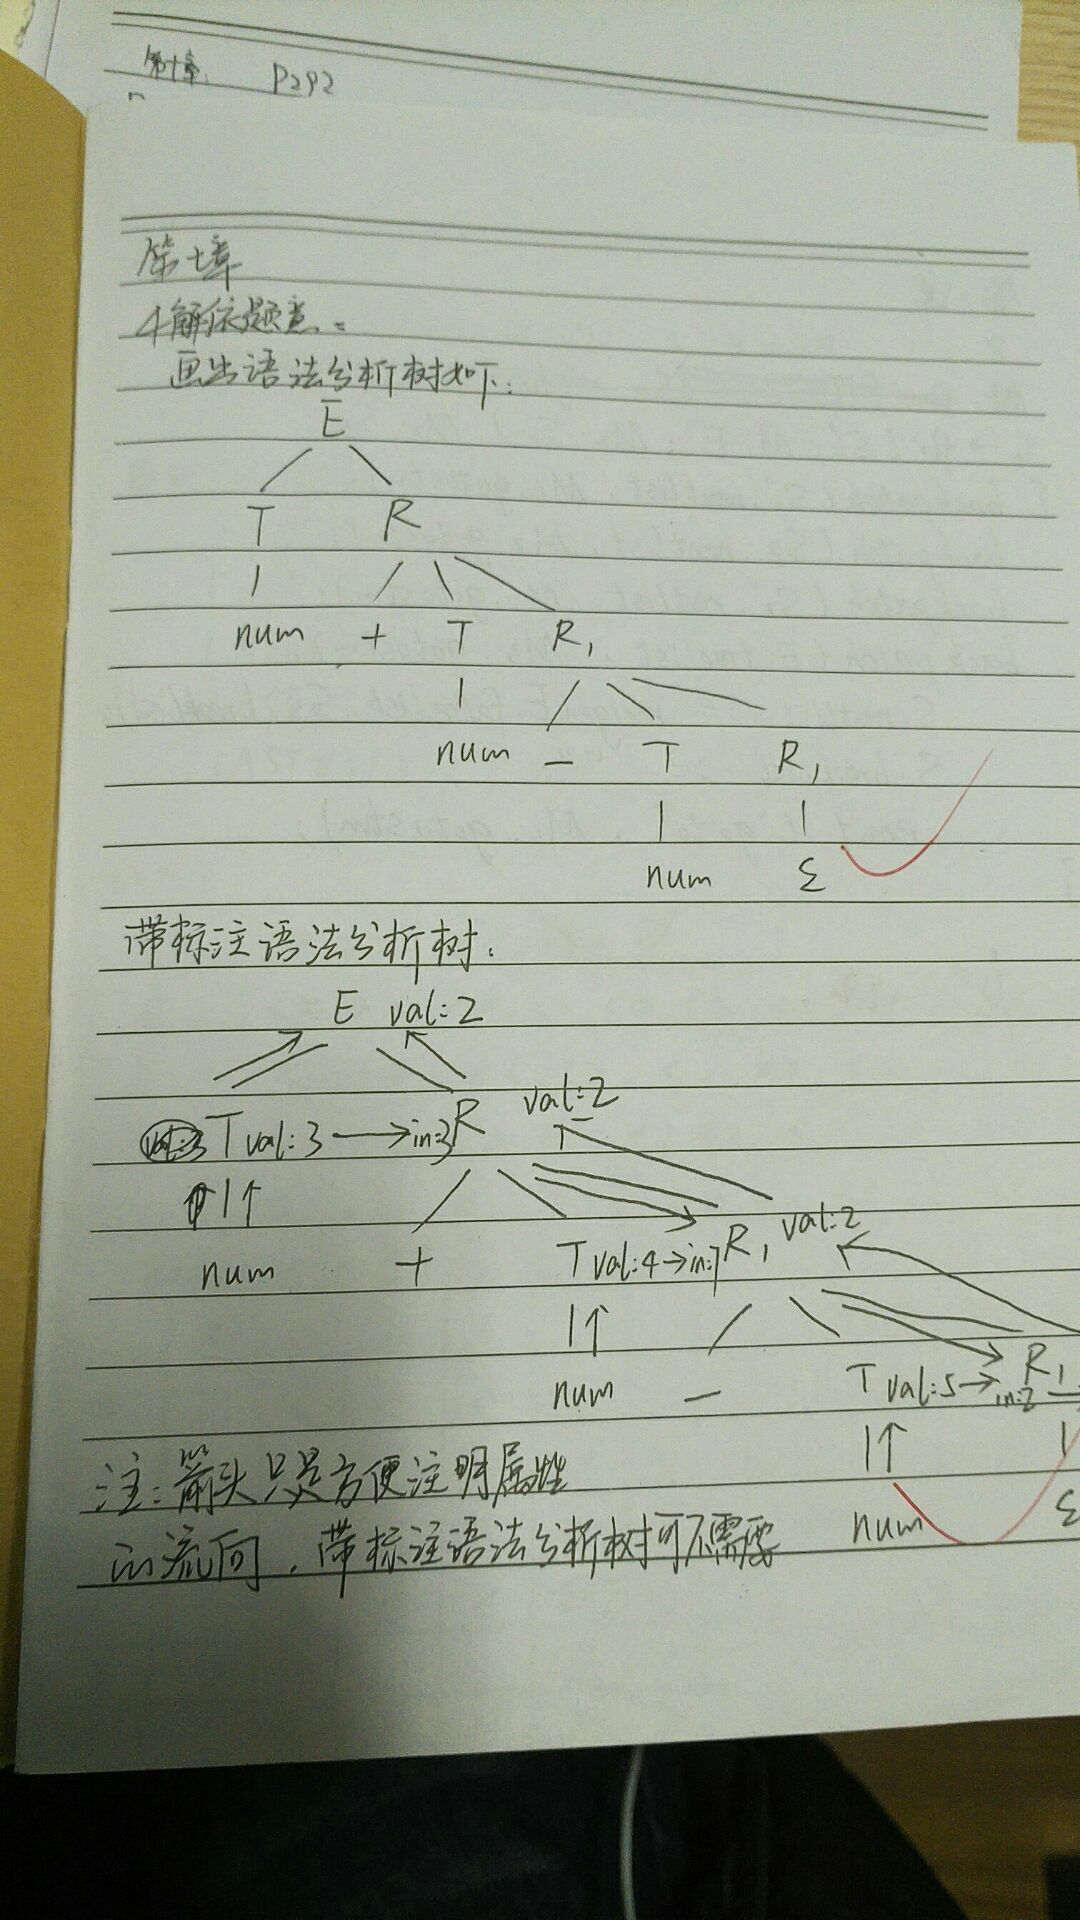 第十章 P292
第七章
4解依题意.
画出语法分析树如下:
E
T R
num + T R₁
num - T R₁
num ε
带标注语法分析树.
E val:2
T val:3 → in:3 R val:2
num + T val:4 → in:7 R₁ val:2
num - T val:5 → in:2 R₁
num ε
注:箭头只是方便注明属性
的流向,带标注语法分析树可不需要